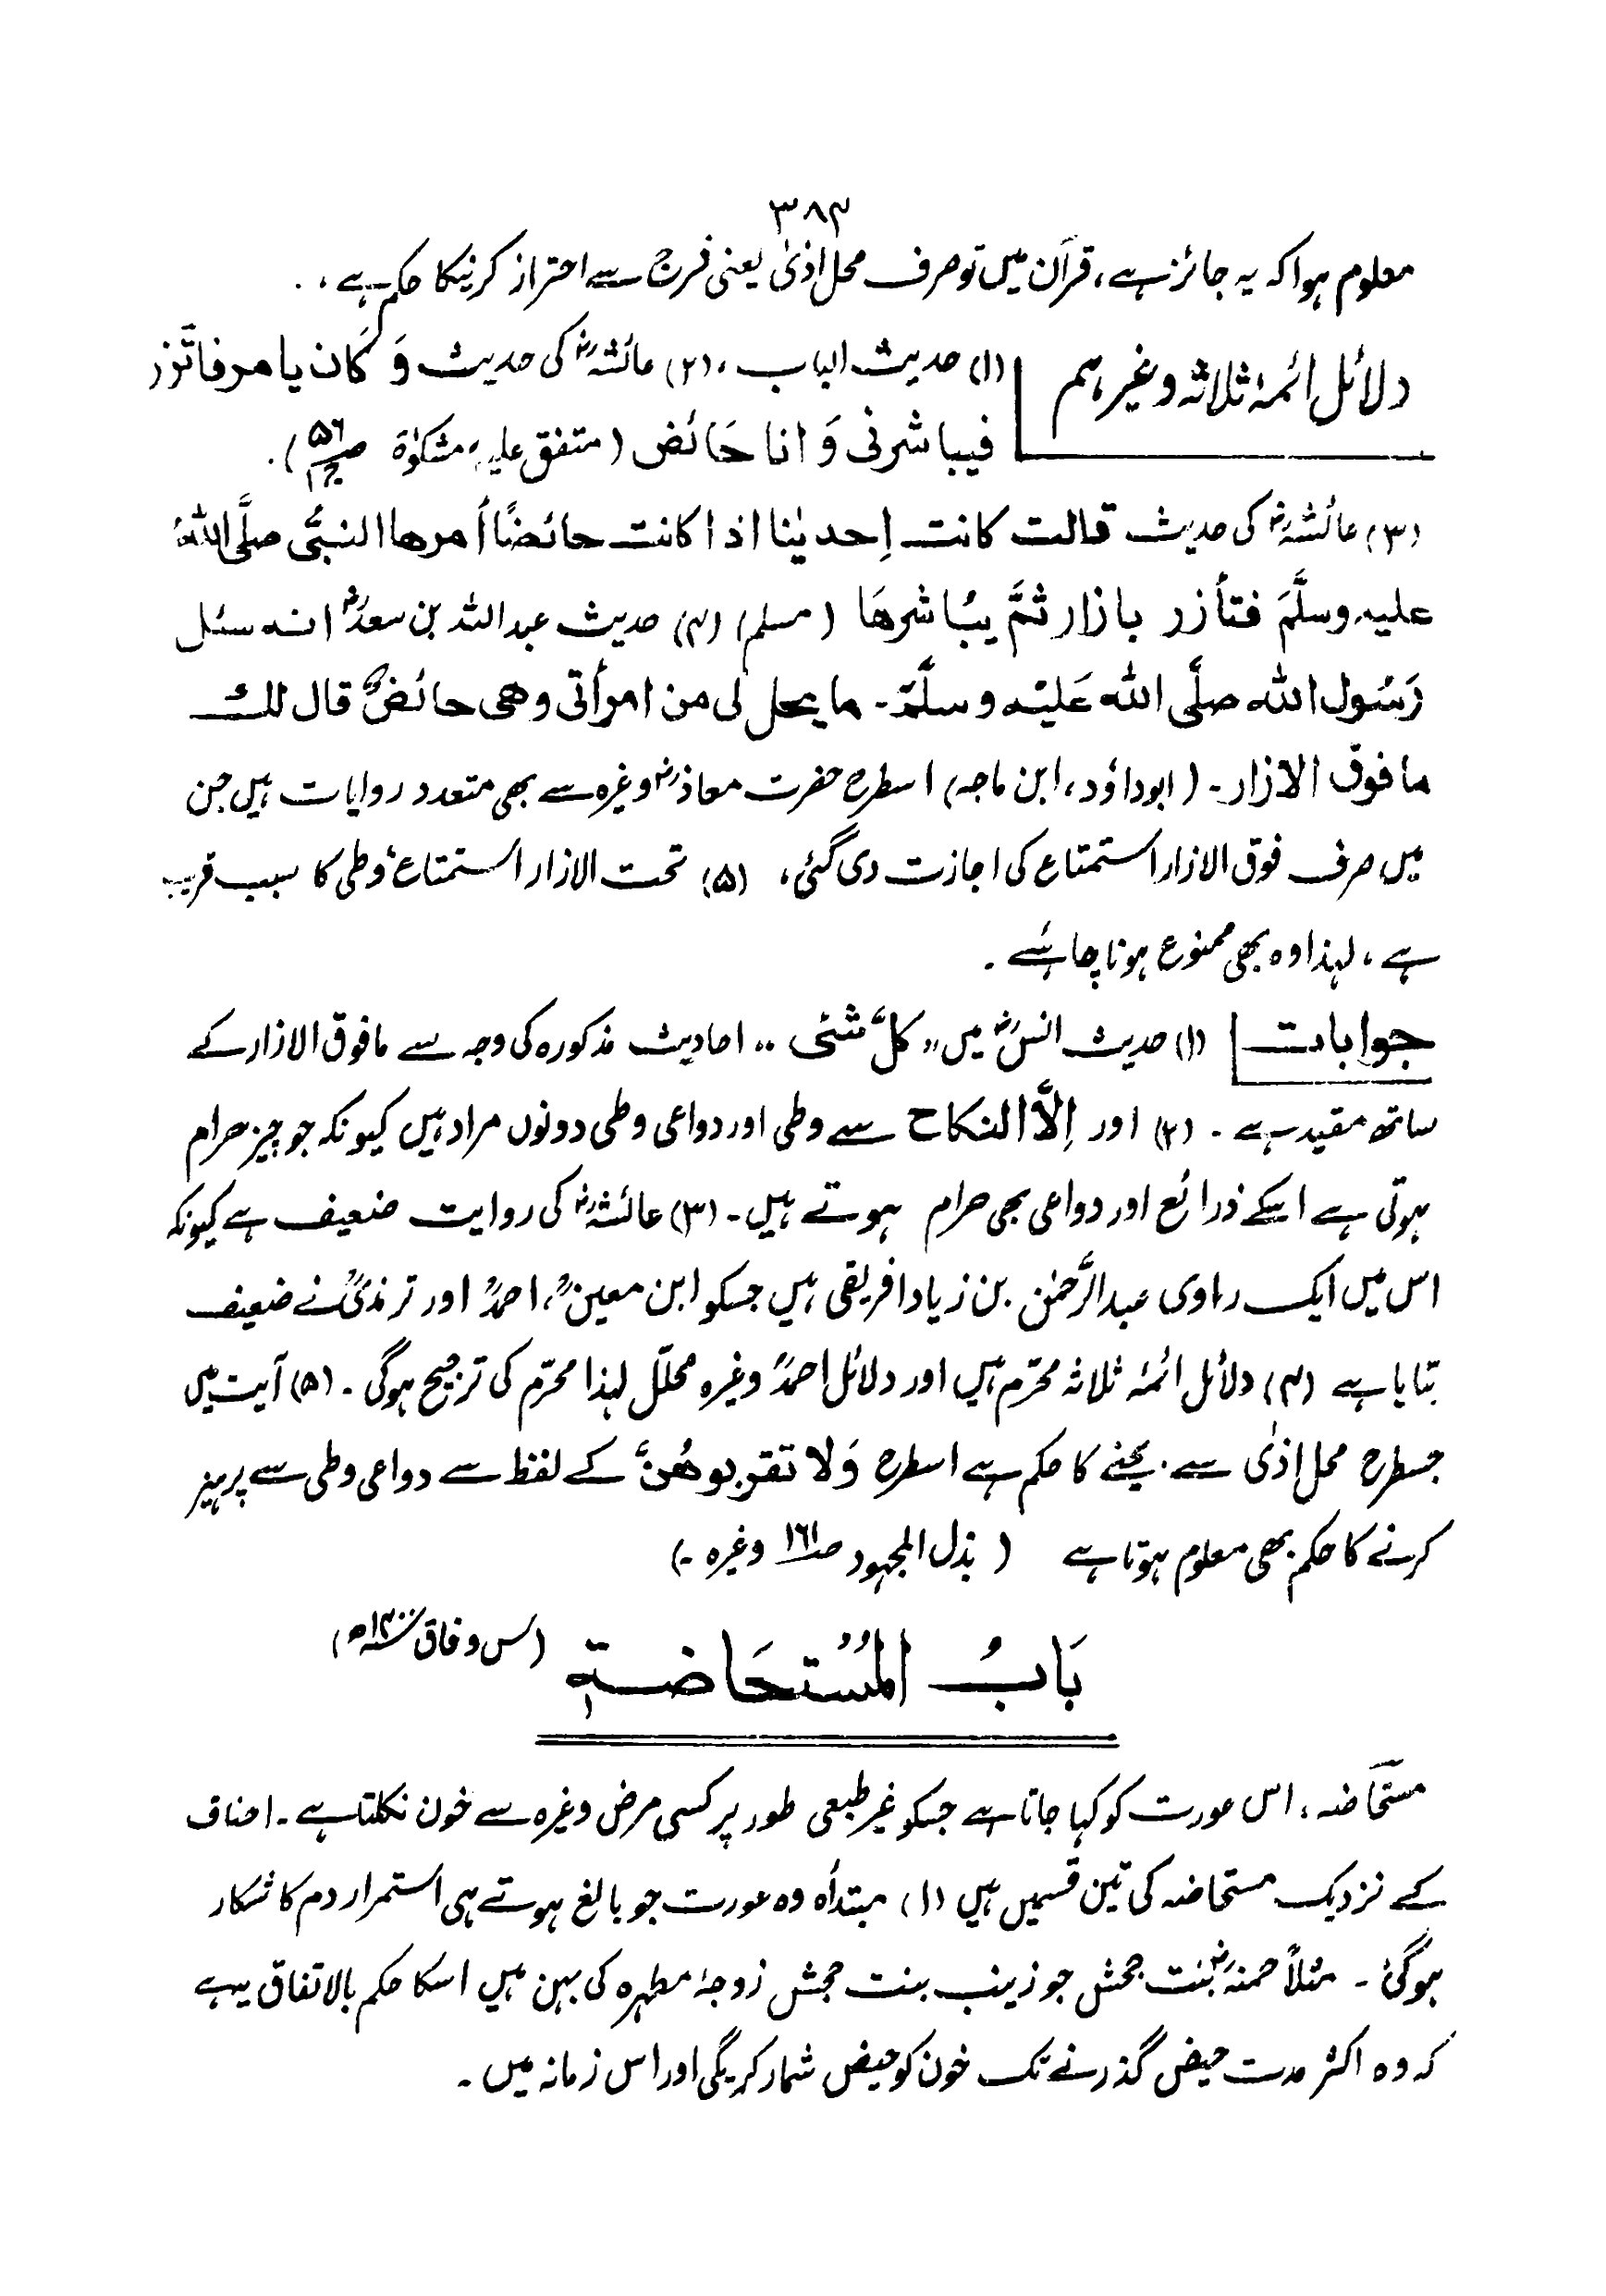 ۳۸۴
معلوم ہوا کہ یہ جائز ہے، قرآن میں تو صرف محل اذیٰ یعنی فرج سے احتراز کرنیکا حکم ہے،.
دلائل ائمۂ ثلاثہ وغیرہم (۱) حدیث الباب، (۲) عائشہؓ کی حدیث وَ کَان یامرفاتّزر
فیباشرنی وَ انا حَائض (متفق علیہ، مشکوٰۃ ص۵۶ ج۱).
(۳) عائشہؓ کی حدیث قالت کانت اِحدیٰنا اذا کانت حائضًا أمرھا النبیُّ صلَّی اللّٰہُ
علیہ وسلَّمَ فتأزر بازار ثمَّ یبُاشرھَا (مسلم) (۴) حدیث عبداللہ بن سعدؓ انہ سئل
رَسُول اللّٰہ صلَّی اللّٰہ عَلیْہ وسلَّمَ۔ ما یحل لی من امرأتی وھی حائضٌ قال لك
مافوق الازار۔ (ابوداؤد، ابن ماجہ) اسطرح حضرت معاذؓ وغیرہ سے بھی متعدد روایات ہیں جن
میں صرف فوق الازار استمتاع کی اجازت دی گئی، (۵) تحت الازار استمتاع وطی کا سبب قریب
ہے، لہذا وہ بھی ممنوع ہونا چاہئے ۔
جوابات (۱) حدیث انسؓ میں ,, کلَّ شئی ,, احادیث مذکورہ کی وجہ سے مافوق الازار کے
ساتھ مقید ہے ۔ (۲) اور اِلَّا النکاح سے وطی اور دواعی وطی دونوں مراد ہیں کیونکہ جو چیز حرام
ہوتی ہے اسکے ذرائع اور دواعی بھی حرام ہوتے ہیں۔ (۳) عائشہؓ کی روایت ضعیف ہے کیونکہ
اس میں ایک راوی عبدالرَّحمٰن بن زیاد افریقی ہیں جسکو ابن معینؒ، احمدؒ اور ترمذیؒ نے ضعیف
بتایا ہے (۴) دلائل ائمۂ ثلاثہ محرّم ہیں اور دلائل احمدؒ وغیرہ محلّل لہذا محرّم کی ترجیح ہوگی ۔ (۵) آیت میں
جسطرح محل اِذٰی سے بچنے کا حکم ہے اسطرح وَلا تقربوھُنَّ کے لفظ سے دواعی وطی سے پرہیز
کرنے کا حکم بھی معلوم ہوتا ہے (بذل المجہود ص۱۶۱ وغیرہ ۔)
بَابُ المُسْتحَاضۃ (س وفاق ۱۴۰۰ھ)
مستحَاضہ، اس عورت کو کہا جاتا ہے جسکو غیر طبعی طور پر کسی مرض وغیرہ سے خون نکلتا ہے ۔ احناف
کے نزدیک مستحاضہ کی تین قسمیں ہیں (۱) مبتدأہ وہ عورت جو بالغ ہوتے ہی استمرار دم کا شکار
ہوگئ ۔ مثلاً حمنہؓ بنت جحش جو زینب بنت جحش زوجۂ مطہرہ کی بہن ہیں اسکا حکم بالاتفاق یہ ہے
کہ وہ اکثر مدت حیض گذرنے تک خون کو حیض شمار کریگی اور اس زمانہ میں ۔